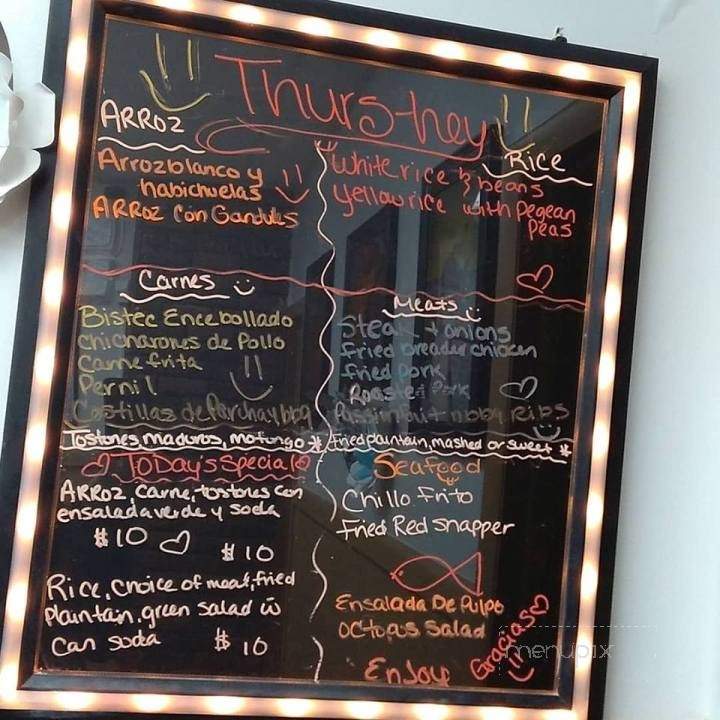 Thurs-hey
ARROZ
Arroz blanco y
habichuelas
ARROZ Con Gandules
Rice
White rice & beans
yellow rice with Pegean
Peas
Carnes
Bistec Encebollado
chicharones de Pollo
Carne frita
Pernil
Costillas de Parcha y bbq
Meats
Steak + onions
fried breaded chicken
fried pork
Roasted Pork
Passinfruit n bbq Ribs
Tostones, maduros, mofongo * fried plaintain, mashed or sweet *
TODay's Special
ARROZ, carne, tostones con
ensalada verde y soda
$10
$10
Rice, choice of meat, fried
Plaintain, green salad w
Can soda $10
Seafood
Chillo Frito
Fried Red snapper
Ensalada De Pulpo
OCTOPUS Salad
Enjoy
Gracias
menupix